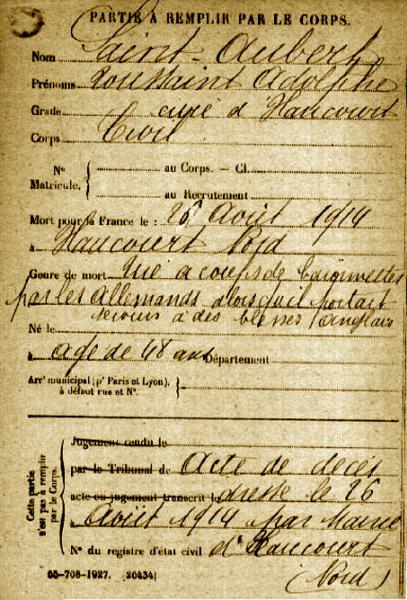 PARTIE À REMPLIR PAR LE CORPS.
Nom Saint-Aubert
Prénoms Toussaint Adolphe
Grade curé d'Haucourt
Corps Civil
N° Matricule. { au Corps. — Cl.
au Recrutement
Mort pour la France le : 26 Août 1914
à Haucourt Nord
Genre de mort Tué à coups de baïonnettes
par les Allemands alors qu'il portait
secours à des blessés anglais
Né le
à âgé de 48 ans Département
Arr<sup>t</sup> municipal (p<sup>r</sup> Paris et Lyon), à défaut rue et N°.
Cette partie n'est pas à remplir par le Corps.
Jugement rendu le
par le Tribunal de Acte de décès
acte ou jugement transcrit le dressé le 26
à Août 1914 par Mairie
N° du registre d'état civil d'Haucourt
(Nord)
55-708-1927. [26434]